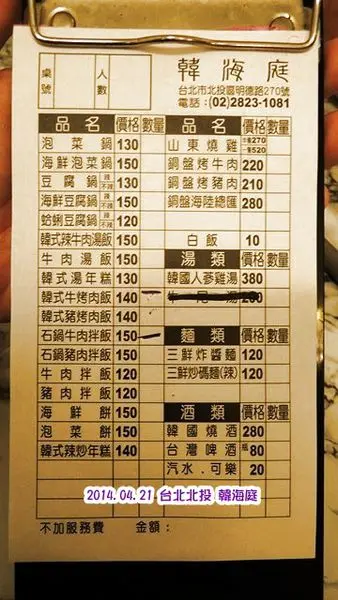 韓海庭
台北市北投區明德路270號
電話：(02)2823-1081
桌號
人數
品名 價格 數量
泡菜鍋 130
海鮮泡菜鍋 150
豆腐鍋 辣 不辣 130
海鮮豆腐鍋 辣 不辣 150
蛤蜊豆腐鍋 辣 不辣 120
韓式辣牛肉湯飯 150
牛肉湯飯 150
韓式湯年糕 130
韓式牛烤肉飯 140
韓式豬烤肉飯 140
石鍋牛肉拌飯 150
石鍋豬肉拌飯 150
牛肉拌飯 120
豬肉拌飯 120
海鮮餅 150
泡菜餅 150
韓式辣炒年糕 140
品名 價格 數量
山東燒雞 270 520
銅盤烤牛肉 220
銅盤烤豬肉 210
銅盤海陸總匯 280
白飯 10
湯類 價格 數量
韓國人蔘雞湯 380
牛尾湯
麵類 價格 數量
三鮮炸醬麵 120
三鮮炒碼麵(辣) 120
酒類 價格 數量
韓國燒酒 280
台灣啤酒 瓶 80
汽水．可樂 20
2014.04.21 台北北投 韓海庭
不加服務費 金額：